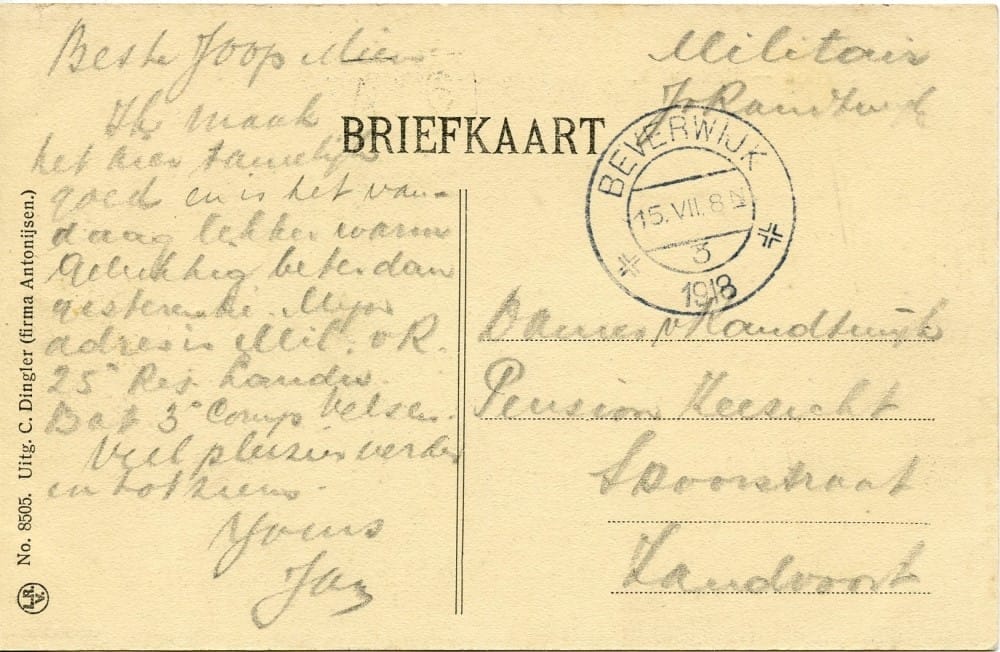 Beste Joop Mien
Ik maak
het hier tamelijk
goed en is het van-
daag lekker warm
Gelukkig beter dan
gisteren. Mijn
adres is Mil. v R.
25e Reg. Landw.
Bat 3e Comp Velsen.
Veel plezier verder
en tot ziens.
Yours
Jan
Militair
J v Randtwijk
BRIEFKAART
BEVERWIJK
15.VII.8 N
3
1918
Dames v Randtwijk
Pension Zeezicht
Spoorstraat
Zandvoort
No. 8505. Uitg. C. Dingler (firma Antonijsen.)
L.R.
V.